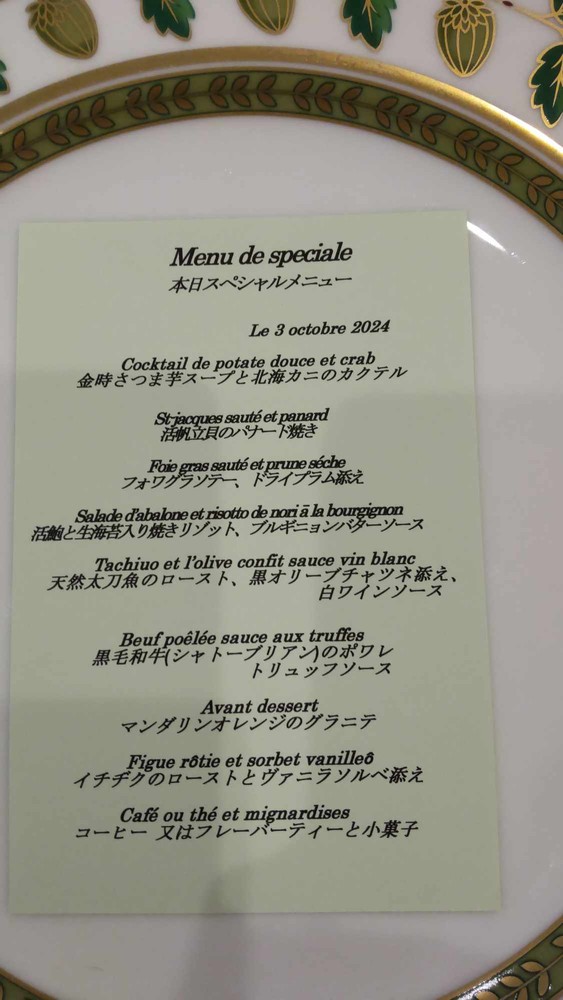 Menu de speciale
本日スペシャルメニュー
Le 3 octobre 2024
Cocktail de potate douce et crab
金時さつま芋スープと北海カニのカクテル
St-jacques sauté et panard
活帆立貝のパナード焼き
Foie gras sauté et prune séche
フォワグラソテー、ドライプラム添え
Salade d'abalone et risotto de nori ā la bourgignon
活鮑と生海苔入り焼きリゾット、ブルギニョンバターソース
Tachiuo et l'olive confit sauce vin blanc
天然太刀魚のロースト、黒オリーブチャツネ添え、
白ワインソース
Beuf poêlée sauce aux truffes
黒毛和牛(シャトーブリアン)のポワレ
トリュッフソース
Avant dessert
マンダリンオレンジのグラニテ
Figue rôtie et sorbet vanilleô
イチヂクのローストとヴァニラソルベ添え
Café ou thé et mignardises
コーヒー 又はフレーバーティーと小菓子